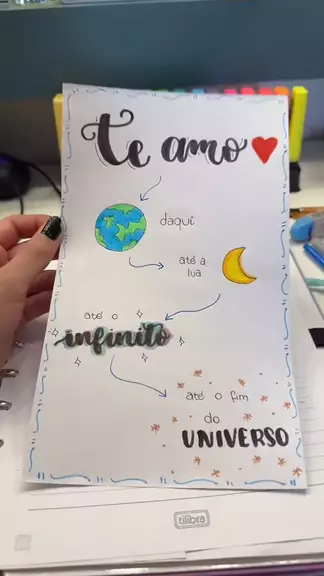 te amo
daqui
até a
lua
até o
infinito
até o fim
do
UNIVERSO
tilibra